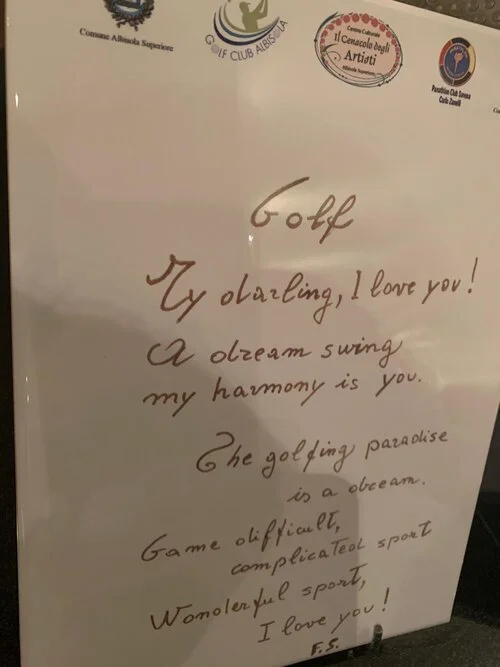 Comune Albisola Superiore
GOLF CLUB ALBISOLA
Centro Culturale
Il Cenacolo degli
Artisti
Albisola Superiore
Panathlon Club Savona
Carlo Zanelli
Golf
My darling, I love you!
A dream swing
my harmony is you.
The golfing paradise
is a dream.
Game difficult,
complicated sport
Wonderful sport,
I love you!
F.S.